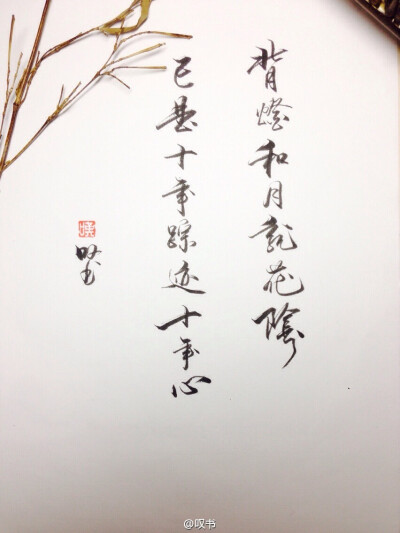 背燈和月就花陰
已是十年踪迹十年心
叹书
@叹书